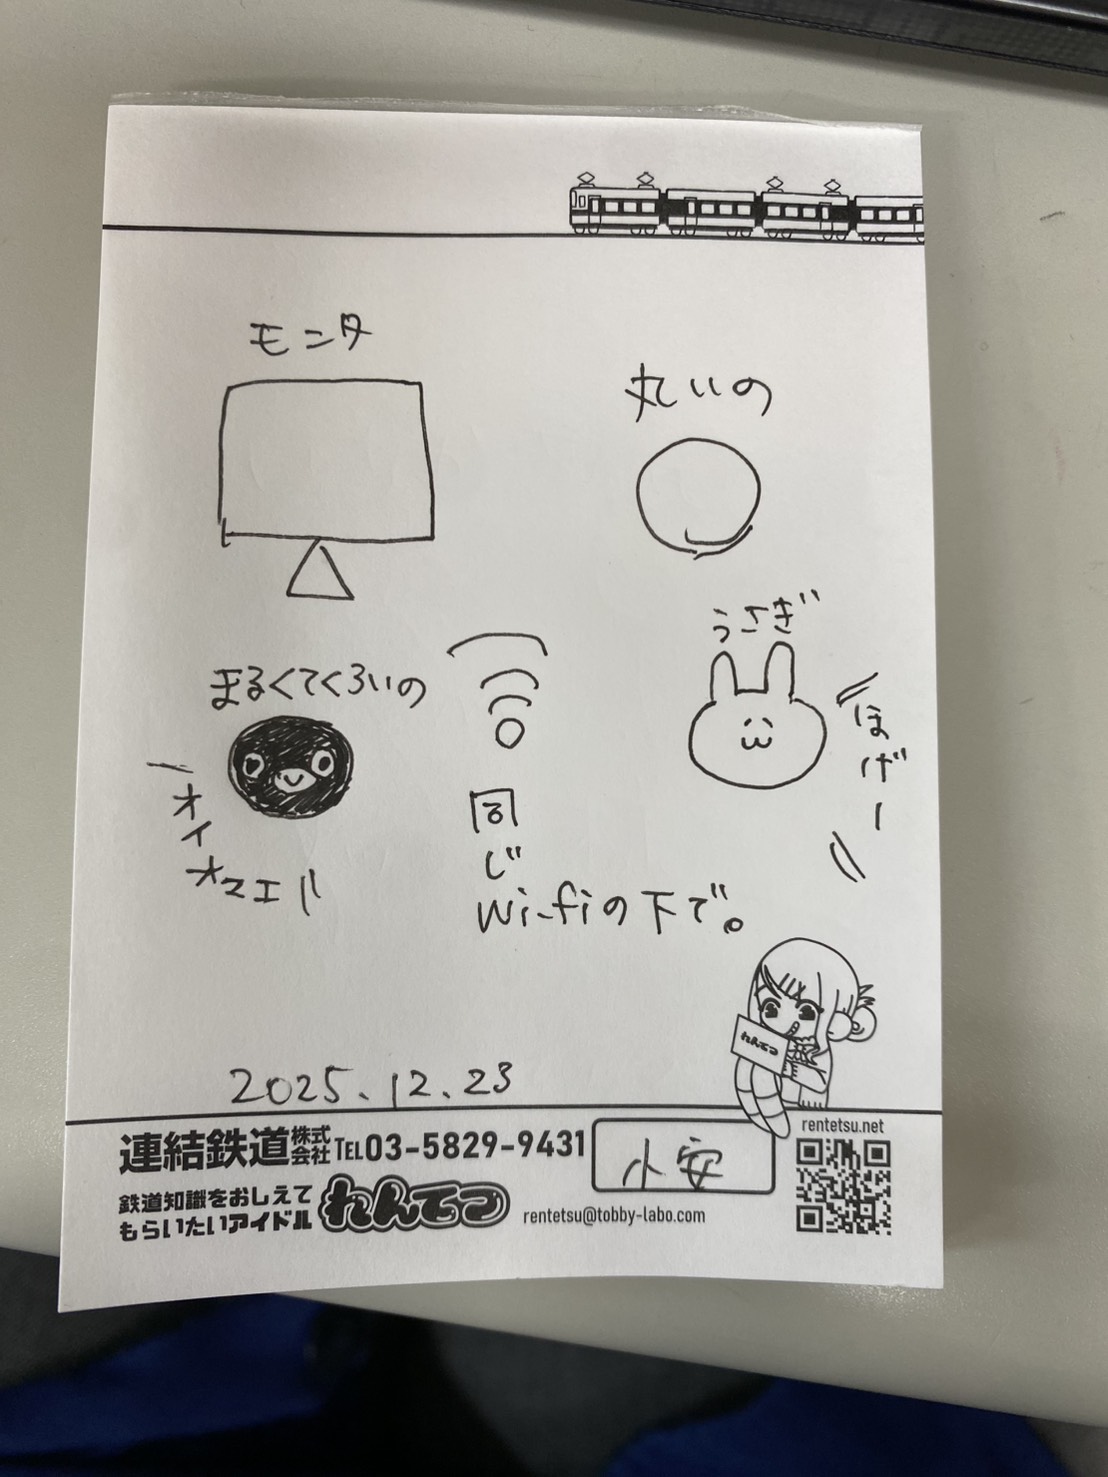 モニタ
丸いの
うさぎ
まるくてくろいの
ほげー
オイオマエ!!
同じ
Wi-fiの下で。
れんてつ
2025.12.23
連結鉄道株式会社 TEL03-5829-9431
小安
rentetsu.net
鉄道知識をおしえて
もらいたいアイドル れんてつ rentetsu@tobby-labo.com